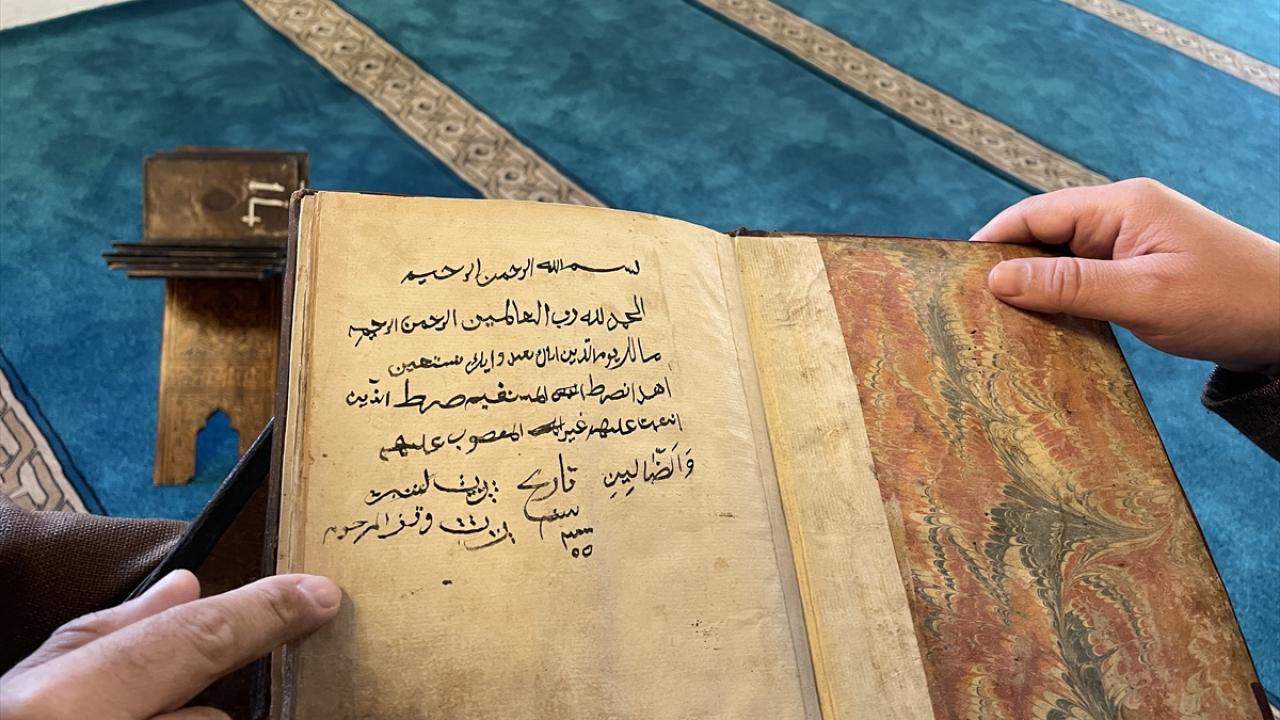 بسم الله الرحمن الرحيم
الحمد لله رب العالمين الرحمن الرحيم
مالك يوم الدين اياك نعبد واياك نستعين
اهدنا صرط المستقيم صرط الذين
انعمت عليهم غير المغضوب عليهم
وَالضَّالِين تاريخ
سنه وقف المرحوم
14